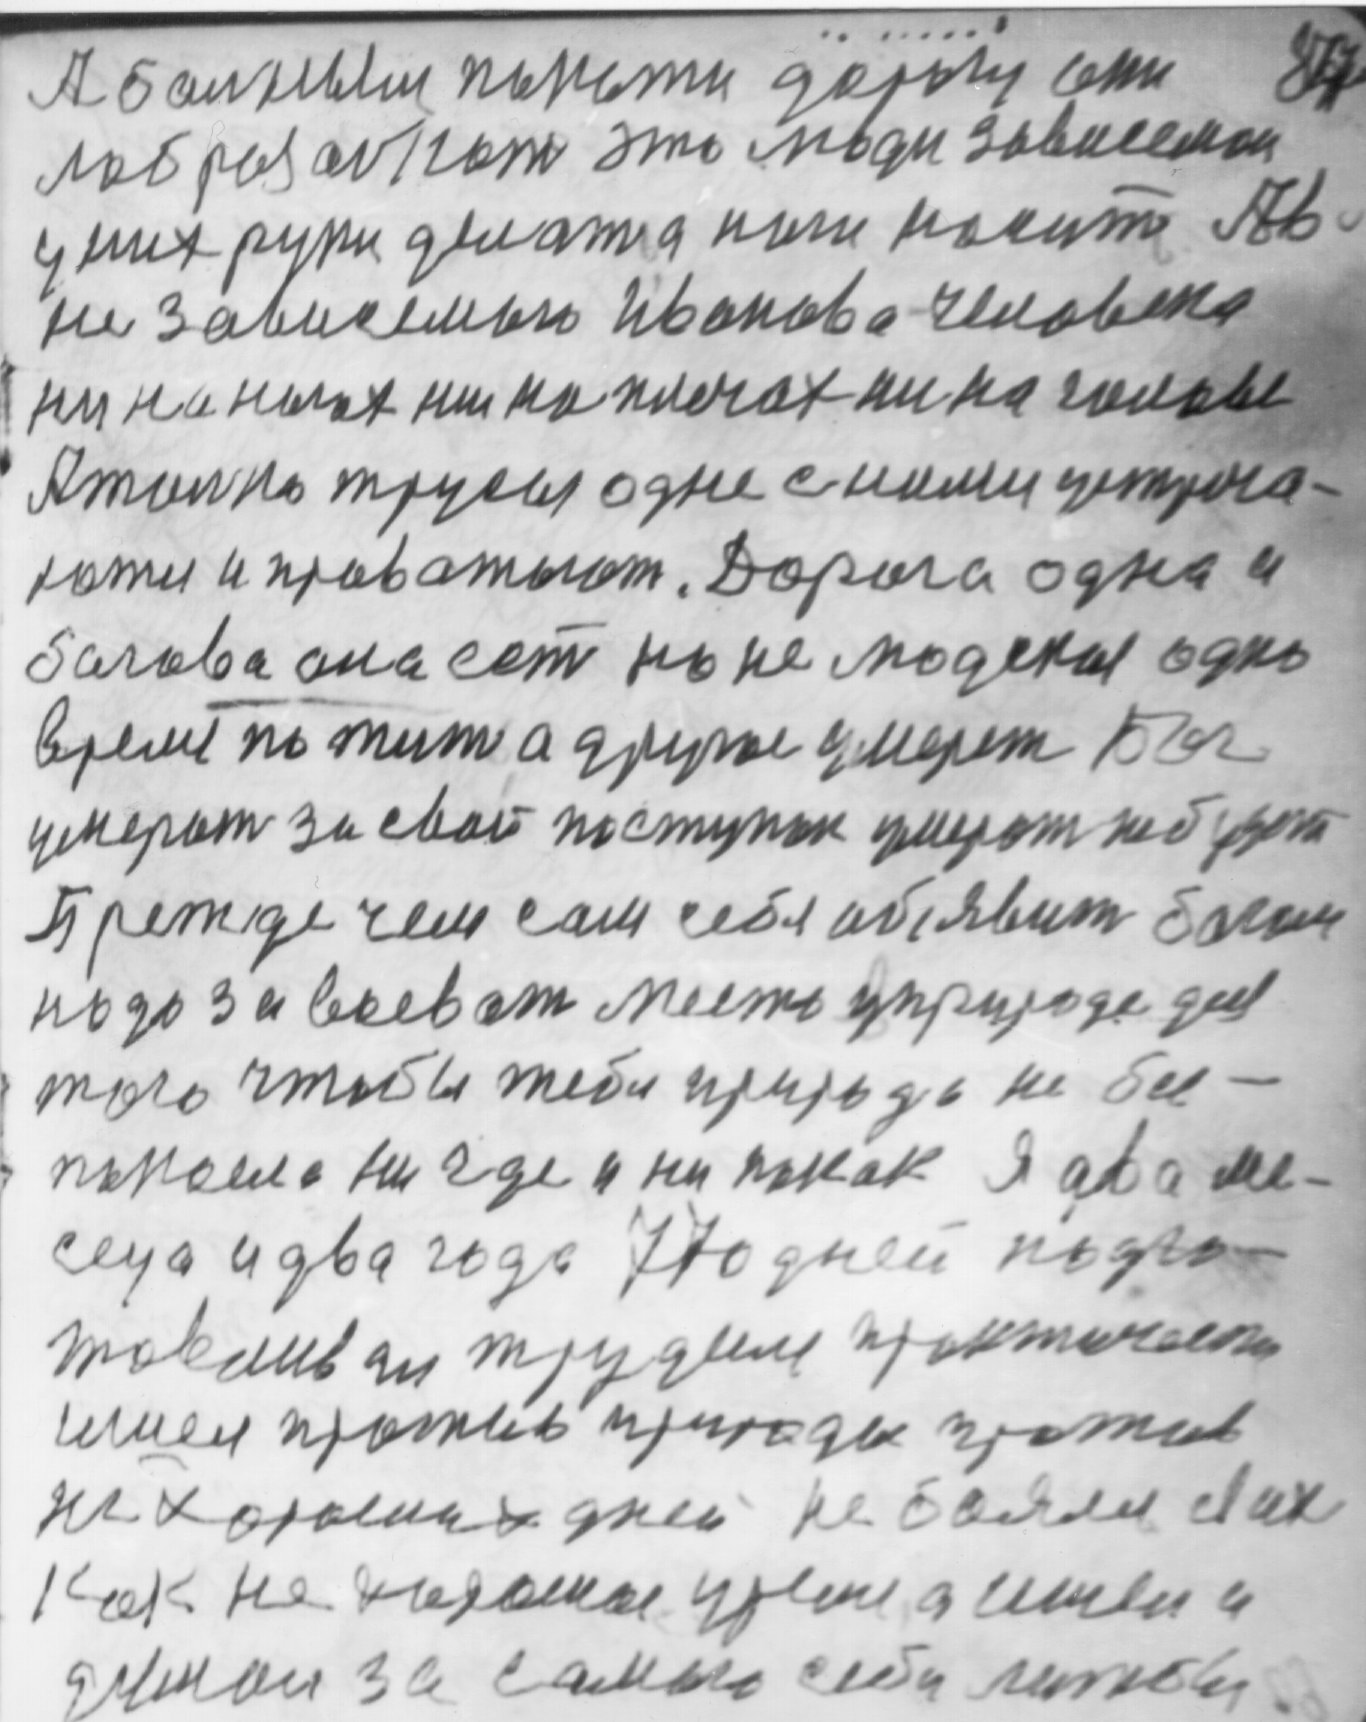 А болным покити дорогу они
это люди зависемои
у них руки делат а ноги носит Ав
не зависемого Иванова человека
ни на ногах ни на плечах ни на голове
Атолко трусы одне с ними устреча-
ют и проватают. Дорога одна и
богова она ест но не людская одно
время пожит а другое умерет Бог
умерат за свой поступок умерат небудет
Прежде чем сам себя обявит богом
надо завоеват место уприроде для
того чтобы тебя природа не бес-
покоела ни где и ни покак Я два ме-
сеца и два года 770 дней подго-
товливал трудом практически
шел против природы против
не хороших дней не боялся их
Как не хорошое а шел и
думол за самого себя